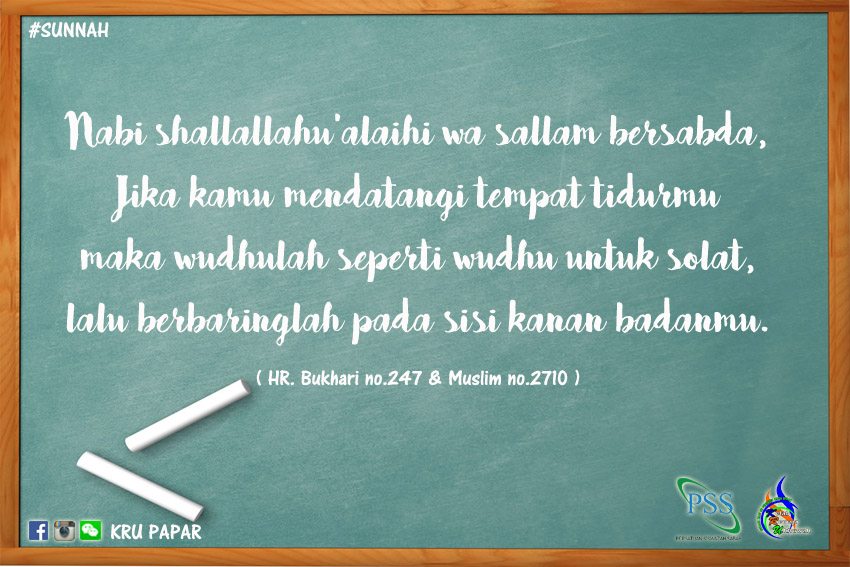 #SUNNAH
Nabi shallallahu'alaihi wa sallam bersabda,
Jika kamu mendatangi tempat tidurmu
maka wudhulah seperti wudhu untuk solat,
lalu berbaringlah pada sisi kanan badanmu.
( HR. Bukhari no.247 & Muslim no.2710 )
KRU PAPAR
PSS